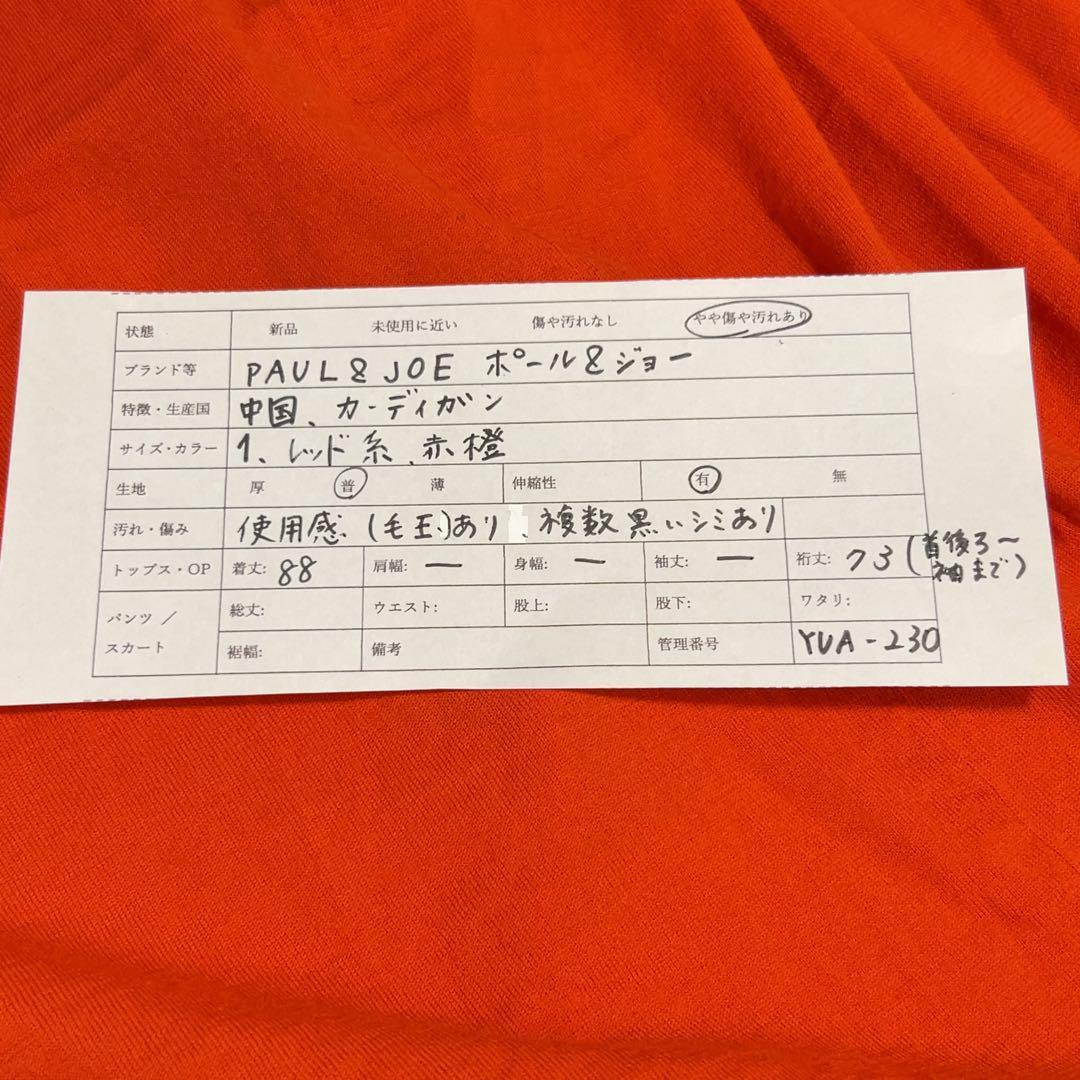 状態 新品 未使用に近い 傷や汚れなし やや傷や汚れあり
ブランド等 PAUL & JOE ポール&ジョー
特徴・生産国 中国、カーディガン
サイズ・カラー 1、レッド系、赤橙
生地 厚 普 薄 伸縮性 有 無
汚れ・傷み 使用感(毛玉)あり、複数黒いシミあり
トップス・OP 着丈: 88 肩幅: ー 身幅: ー 袖丈: ー 裄丈: 73(首後ろ〜袖まで)
パンツ/スカート 総丈: ウエスト: 股上: 股下: ワタリ:
裾幅: 備考 管理番号 YUA-230